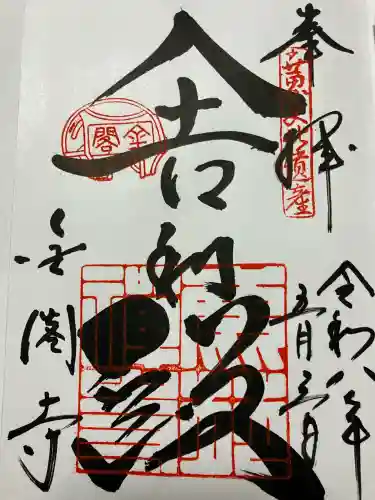 奉拝
世界文化遺産
舎利殿
金閣
令和八年
五月三日
金閣寺